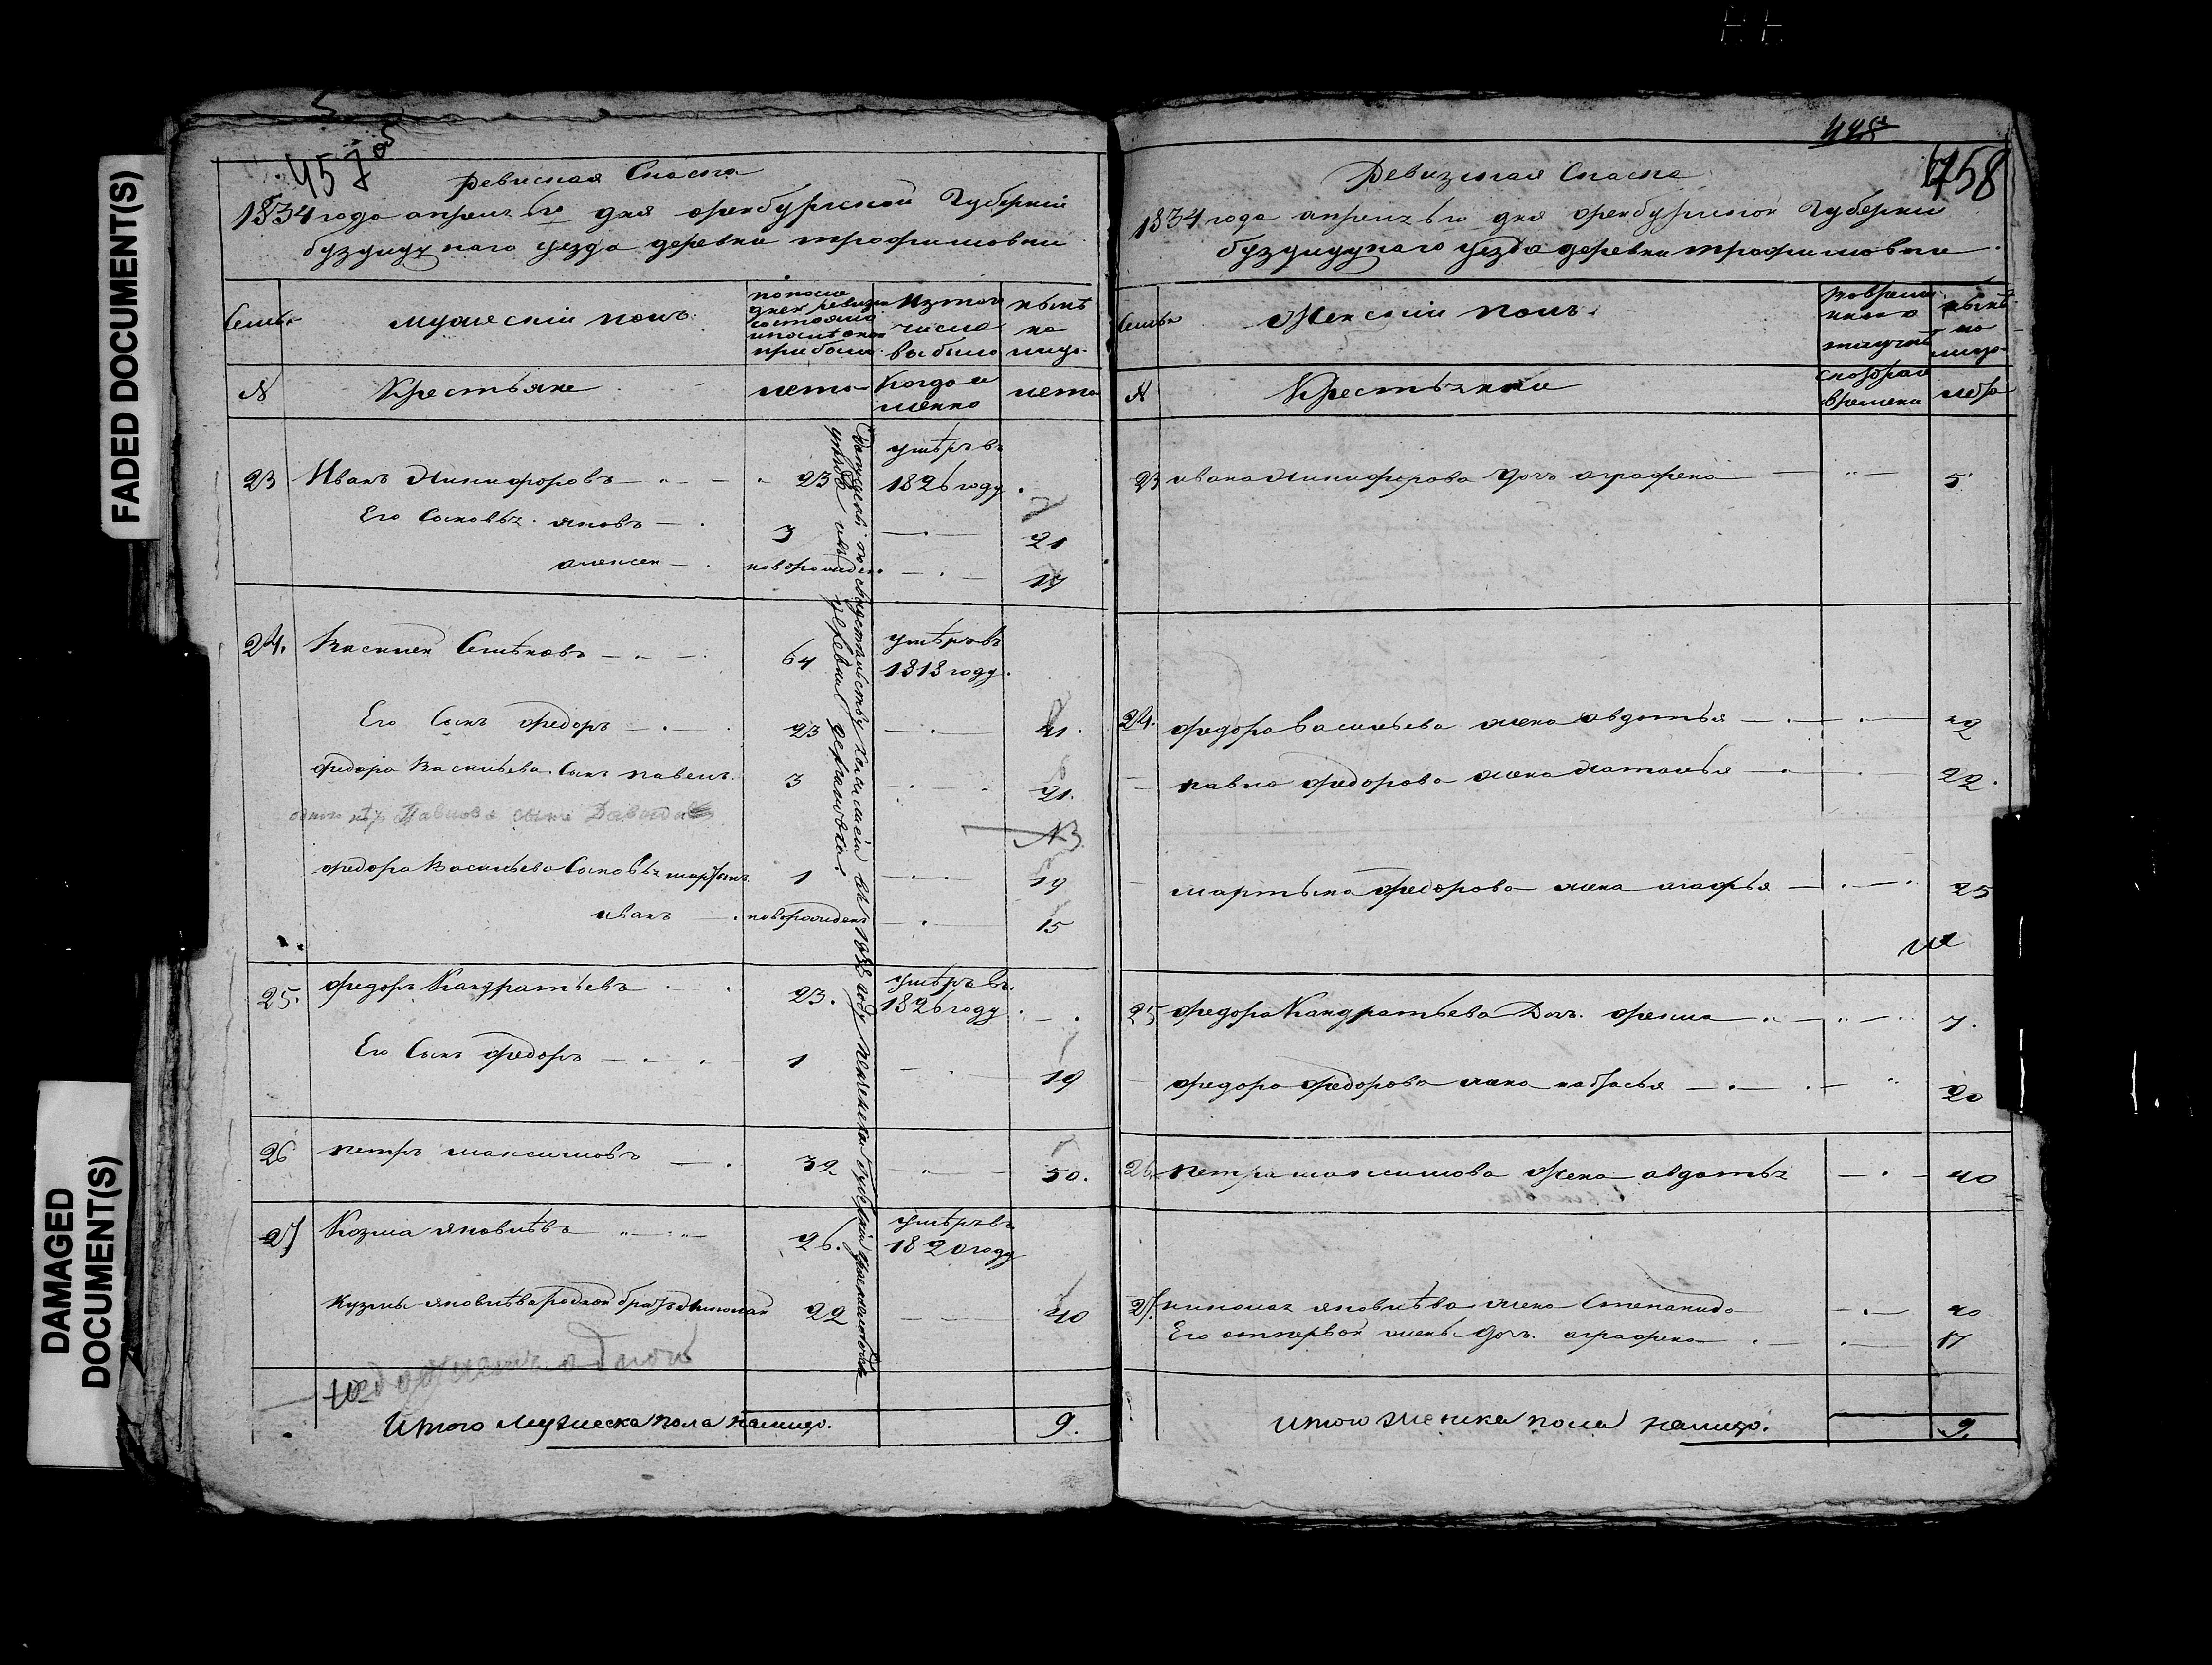 FADED DOCUMENT(S)
DAMAGED
DOCUMENT(S)
457 об
ревиская Сказка
1834 года апреля 6го дня оренбургской Губернии
бузулуцкаго уезда деревни трофимовки
Семьи
мужескій полъ
по последней ревизии состояло и после оной прибыло
Изтого числа выбыло
нынѣ на лицо
№
Крестьяне
лета
Когда именно
лета
23 Иванъ Никифоровъ 23 умѣръ въ 1826 году
Его Сыновья яковъ 3 21
алексеи новорожден 17
24. Василеи Семѣновъ 64 умѣръ въ 1818 году.
Его Сынъ федоръ 23 41.
федора Васильева Сынъ павелъ 3 21.
Павлова сына Давыда 13
федора Васильева Сыновья мартынъ 1 19
иванъ новорожденъ 15
25. федоръ Кандратьевъ 23. умѣръ въ 1826 году
Его Сынъ федоръ 1 19
26 петръ максимовъ 32 50.
27 Козма яковлѣвъ 26. умѣръ въ 1820 году
Кузмы яковлѣва родной братъ николай 22 40
одной
Итого Мужеска пола налицо. 9.
448
458
Ревизская Сказка
1834 года апреля 6го дня оренбургской Губернии
бузулуцкаго уезда деревни трофимовки
Семьи
Женскій полъ
нынѣ на лицо
№
Крестьянки
с котораго времени
лета
23 ивана Никифорова дочь аграфена 5
24. федора васильева жена авдотья 42
павла федорова жена наталья 22.
мартына федорова жена агафья 25
25 федора Кандратьева Дочь фекла 7.
федора федорова жена настасья 20
26. петра максимова жена авдотья 40
27. николая яковлѣва жена Степанида 40
Его отпервой жены дочь аграфена 17
итого женска пола налицо. 9.